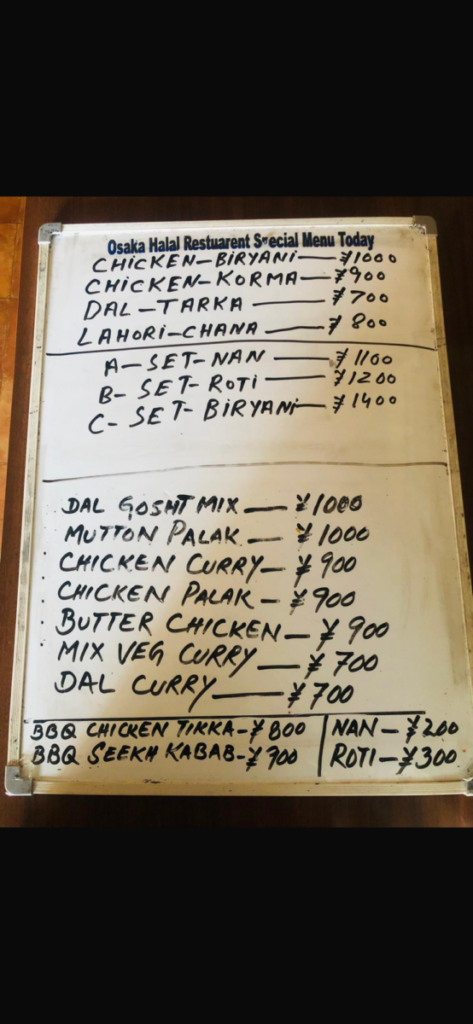 Osaka Halal Restuarent Special Menu Today
CHICKEN-BIRYANI — ¥1000
CHICKEN-KORMA — ¥900
DAL-TARKA — ¥700
LAHORI-CHANA — ¥800
A-SET-NAN — ¥1100
B-SET-ROTI — ¥1200
C-SET-BIRYANI — ¥1400
DAL GOSHT MIX — ¥1000
MUTTON PALAK — ¥1000
CHICKEN CURRY — ¥900
CHICKEN PALAK — ¥900
BUTTER CHICKEN — ¥900
MIX VEG CURRY — ¥700
DAL CURRY — ¥700
BBQ CHICKEN TIKKA - ¥800
BBQ SEEKH KABAB - ¥700
NAN — ¥200
ROTI — ¥300